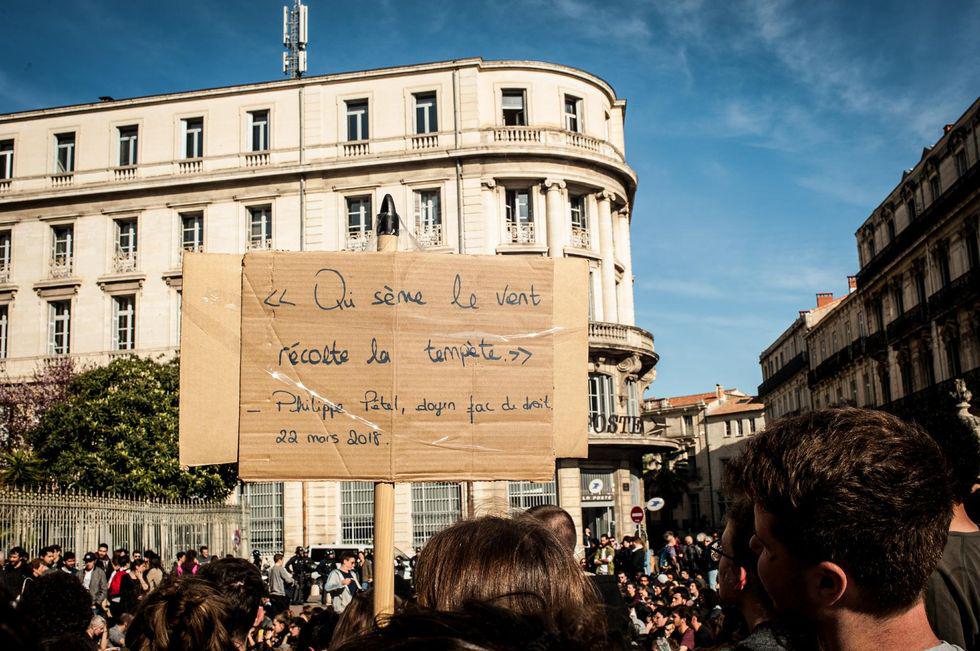 << Qui sème le vent
récolte la tempète. >>
_ Philippe Pétel, doyen fac de droit.
22 mars 2018.
POSTE
LA POSTE